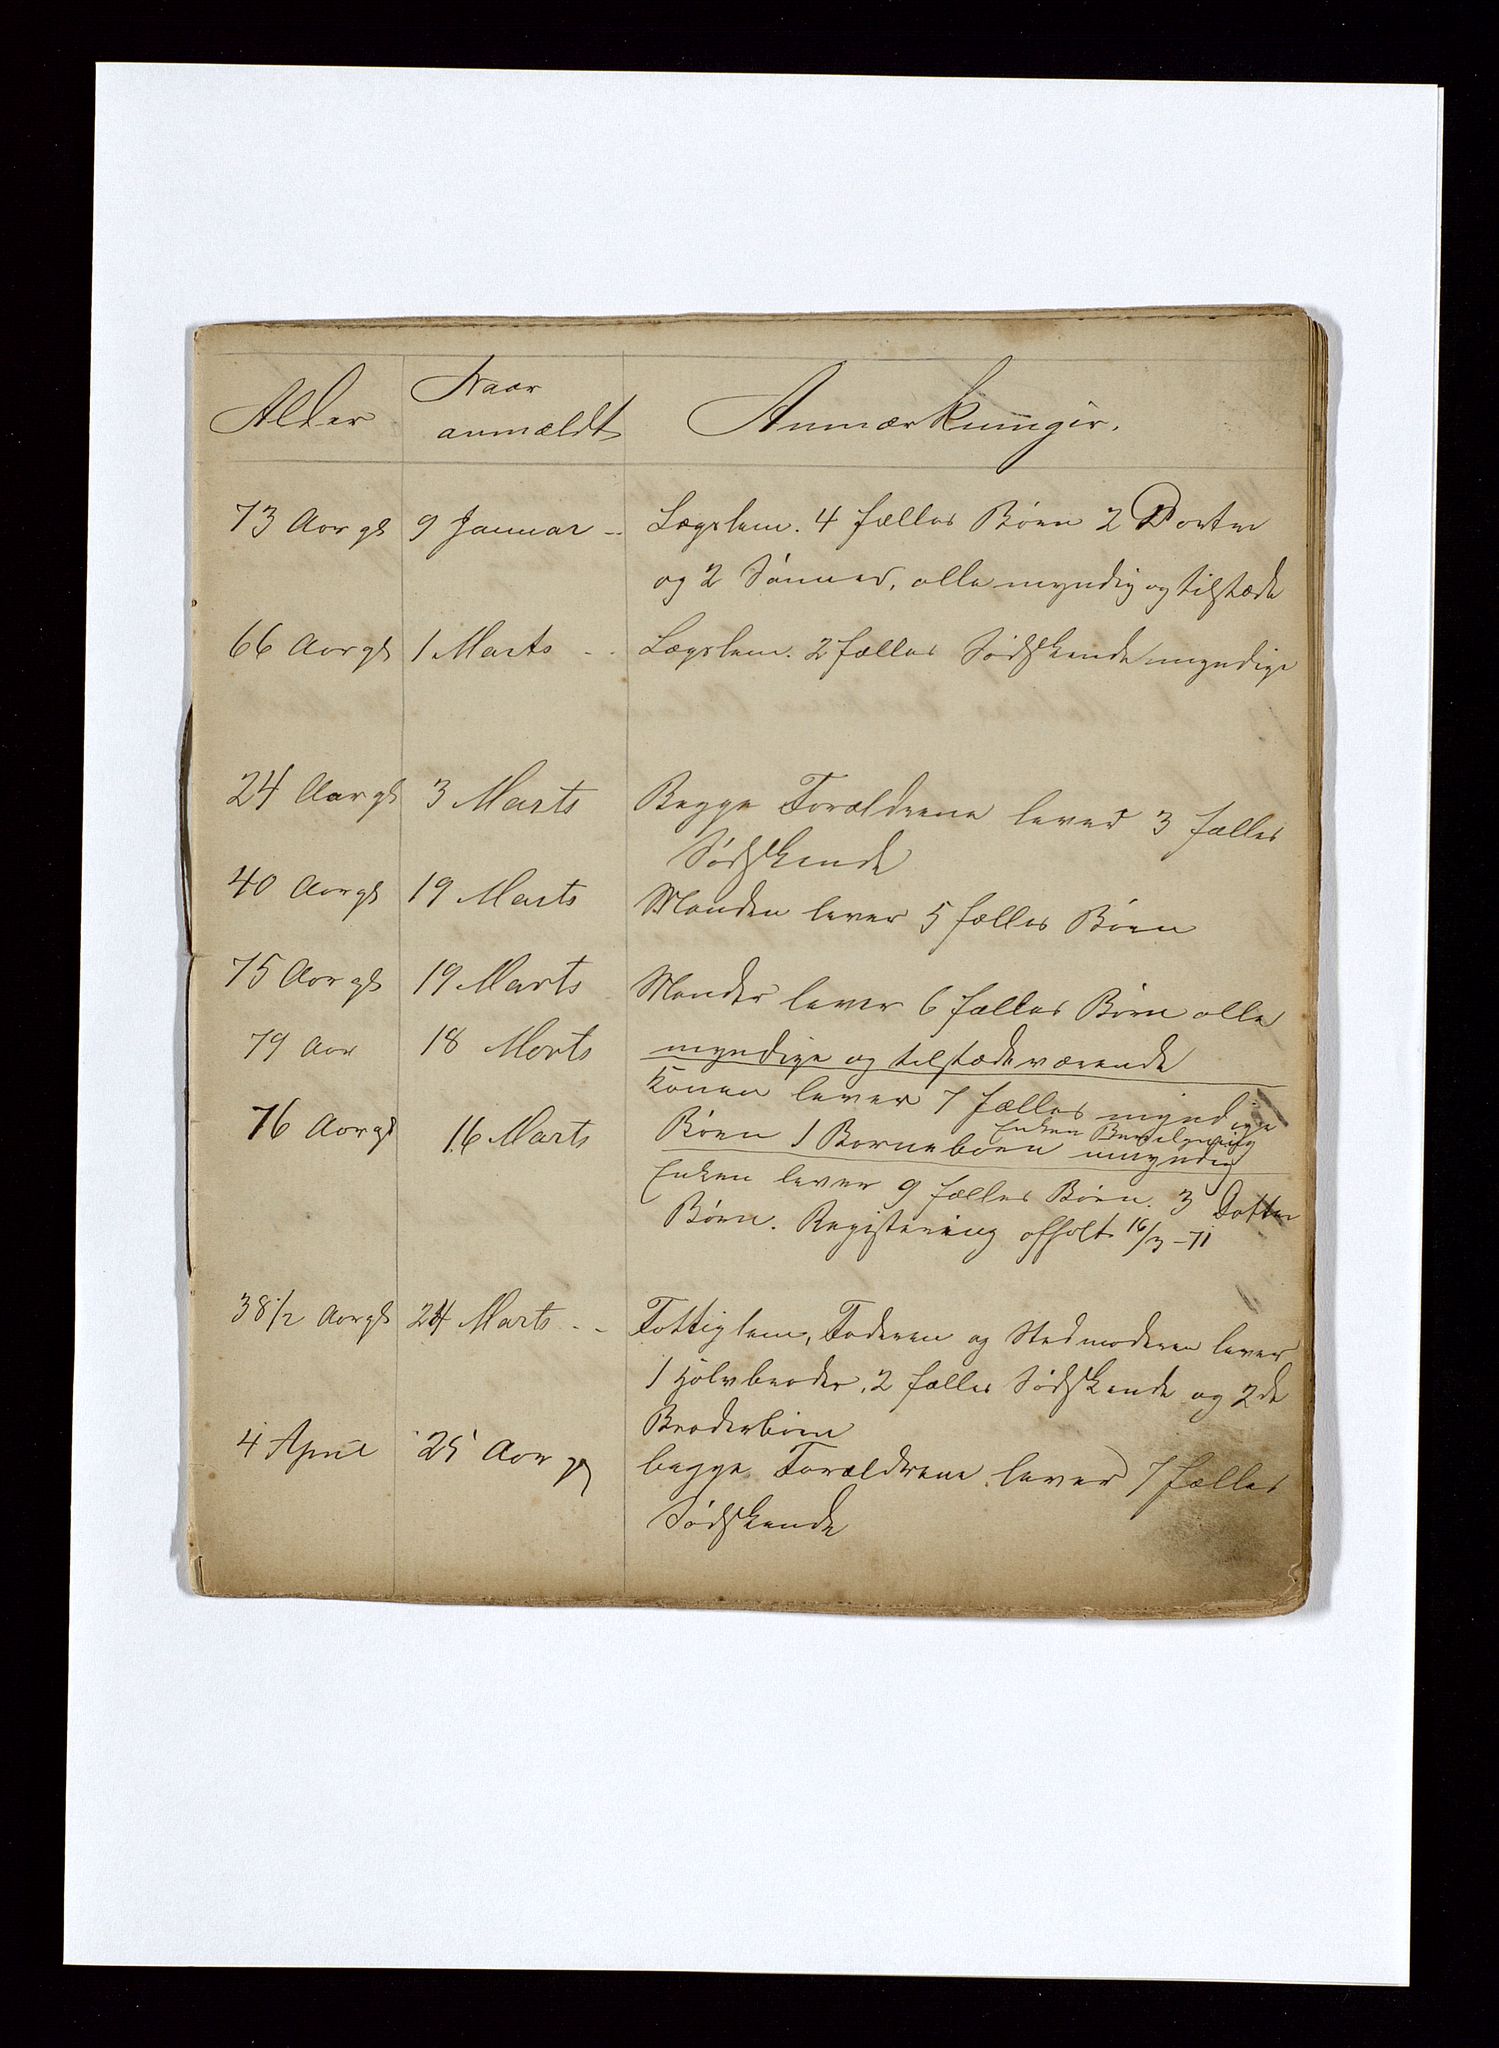 Alder Naar anmældt Anmærkninger.
73 Aar gl 9 Januar -- Lægslem. 4 fælles Børn 2 Dottre
og 2 Sønner, alle myndig og tilstæde
66 Aar gl 1 Marts - - Lægslem. 2 fælles Sødskende myndige
24 Aar gl 3 Marts Begge Forældrene lever 3 fælles
Sødskende
40 Aar gl 19 Marts Manden lever 5 fælles Børn
75 Aar gl 19 Marts Manden lever 6 fælles Børn alle
myndige og tilstædeværende
79 Aar 18 Marts Konen lever 7 fælles myndige
Børn 1 Barnebarn umyndig
Enken
76 Aar gl 16 Marts Enken lever 9 fælles Børn. 3 Dotter
Børn. Registering afholt 16/3 -71
38 1/2 Aar gl 24 Marts - - Fattiglem, Faderen og Stedmoderen lever
1 Halvbroder, 2 fælles Sødskende og 2de
Broderbørn
4 April 25 Aar gl begge Forældrene lever 7 fælles
Sødskende